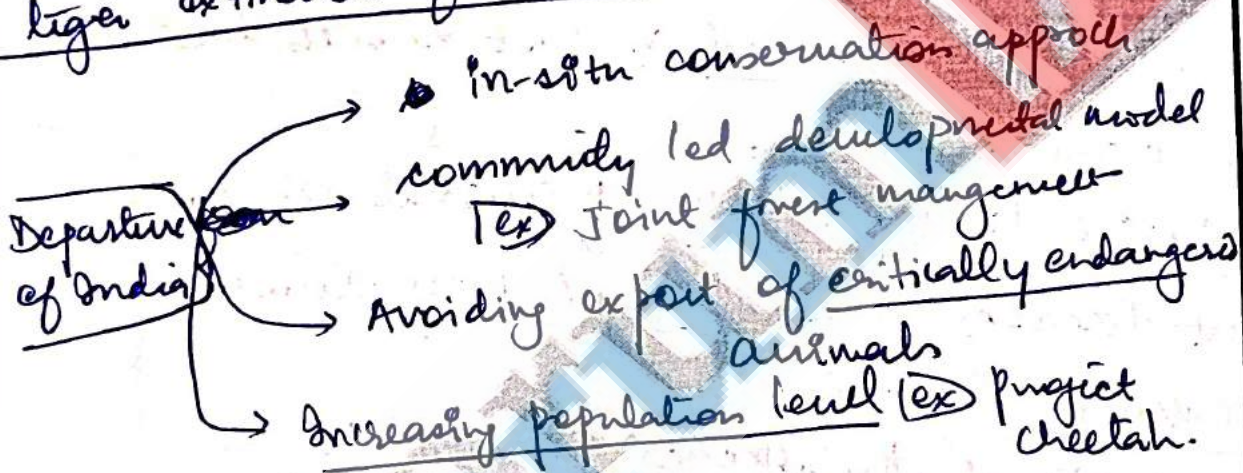 tiger
in-situ conservation approch
commnidy led developmental model
ex Joint forest mangement
Departure
of India
Avoiding export of critically endangered
animals
Increasing population level ex project
cheetah.